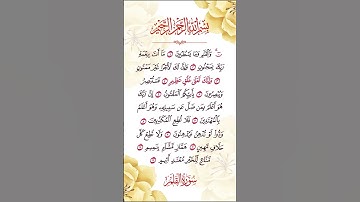 بسم الله الرحمن الرحيم
نۤ وَٱلْقَلَمِ وَمَا يَسْطُرُونَ ۝ مَا أَنتَ بِنِعْمَةِ
رَبِّكَ بِمَجْنُونٍ ۝ وَإِنَّ لَكَ لَأَجْرًا غَيْرَ مَمْنُونٍ
۝ وَإِنَّكَ لَعَلَىٰ خُلُقٍ عَظِيمٍ ۝ فَسَتُبْصِرُ
وَيُبْصِرُونَ ۝ بِأَييِّكُمُ ٱلْمَفْتُونُ ۝ إِنَّ رَبَّكَ
هُوَ أَعْلَمُ بِمَن ضَلَّ عَن سَبِيلِهِ وَهُوَ أَعْلَمُ
بِٱلْمُهْتَدِينَ ۝ فَلَا تُطِعِ ٱلْمُكَذِّبِينَ ۝
وَدُّوا۟ لَوْ تُدْهِنُ فَيُدْهِنُونَ ۝ وَلَا تُطِعْ كُلَّ
حَلَّافٍ مَّهِينٍ ۝ هَمَّازٍ مَّشَّاءٍ بِنَمِيمٍ ۝
مَّنَّاعٍ لِّلْخَيْرِ مُعْتَدٍ أَثِيمٍ ۝
سورة القلم